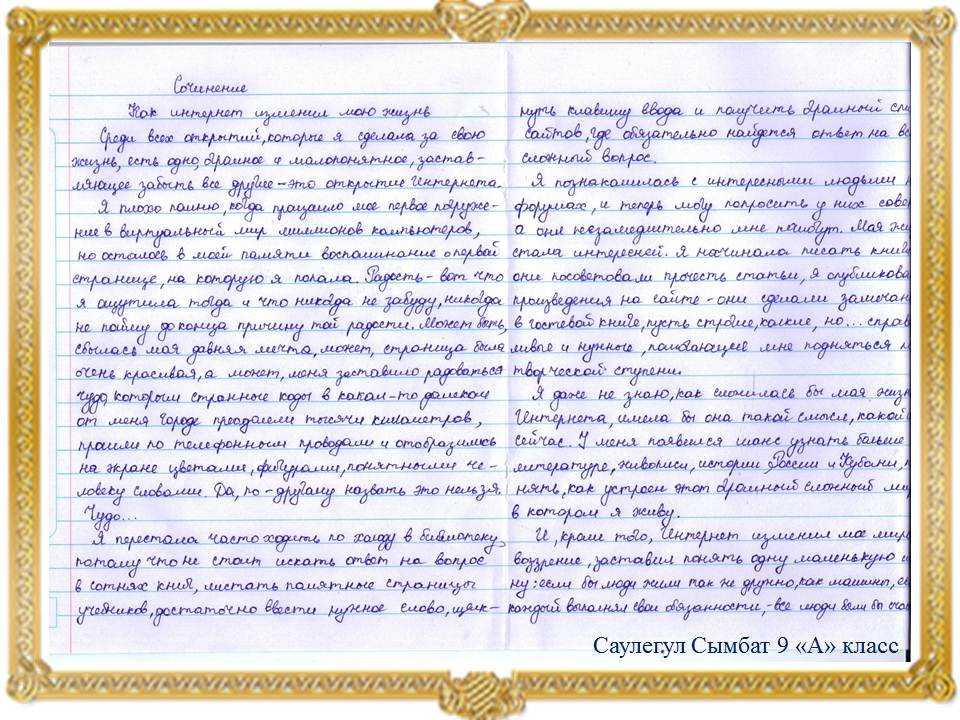 Сочинение
Как интернет изменил мою жизнь
Среди всех открытий, которые я сделала за свою
жизнь, есть одно, огромное и малопонятное, застав-
ляющее забыть все другие - это открытие Интернета.
Я плохо помню, когда произошло мое первое погруже-
ние в виртуальный мир миллионов компьютеров,
но осталось в моей памяти воспоминание о первой
странице, на которую я попала. Радость - вот что
я ощутила тогда и что никогда не забуду, никогда
не пойму до конца причину той радости. Может быть,
сбылась моя давняя мечта, может, страница была
очень красивая, а может, меня заставило радоваться
чудо, которым странные коды в каком-то далеком
от меня городе преодолели тысячи километров,
прошли по телефонным проводам и отобразились
на экране цветами, фигурами, понятными че-
ловеку словами. Да, по-другому назвать это нельзя.
Чудо...
Я перестала часто ходить по холоду в библиотеку,
потому что не стоит искать ответ на вопрос
в сотнях книг, листать памятные страницы
учебников, достаточно ввести нужное слово, щелк-
нуть клавишу ввода и получить огромный
сайтов, где обязательно найдется ответ на
сложный вопрос.
Я познакомилась с интересными людьми
форумах, и теперь могу попросить у них
а они незамедлительно мне помогут. Моя
стала интересней. Я начинала писать
они посоветовали прочесть статьи, я
произведения на сайте - они сделали
в гостевой книге, пусть строгие, колкие, но...
ливые и нужные, помогающие мне подняться
творческой ступени.
Я даже не знаю, как сложилась бы моя
Интернета, имела бы она такой смысл, какой
сейчас. У меня появился шанс узнать больше
литературе, живописи, истории России и Кубани,
нять, как устроен этот огромный сложный
в котором я живу.
И, кроме того, Интернет изменил мое миро
воззрение, заставил понять одну маленькую
ну: если бы люди жили так же дружно, как машины,
каждый выполнял свои обязанности, - все люди были бы
Саулегул Сымбат 9 «А» класс